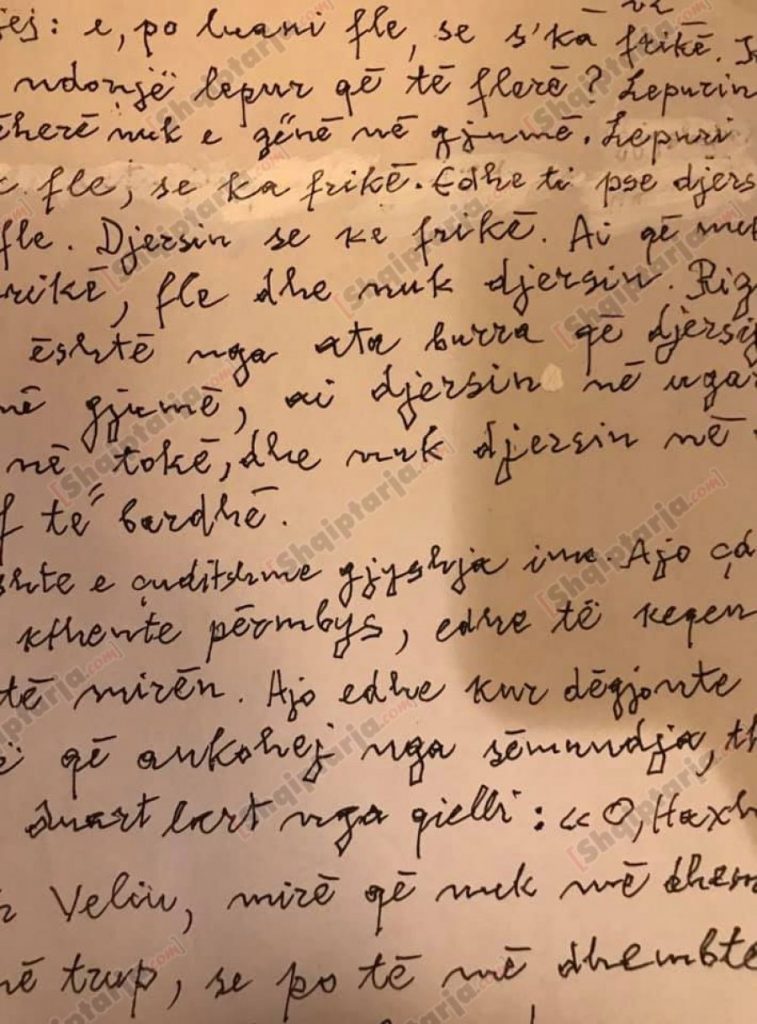 jej: e, po luani fle, se s'ka frikë.
ndonjë lepur që të flerë? Lepurin
herë nuk e zënë në gjumë. Lepuri
fle, se ka frikë. Edhe ti pse djers
fle. Djersin se ke frikë. Ai që nuk
rikë, fle dhe nuk djersin.
është nga ata burra që djersij
në gjumë, ai djersin në ugar
në tokë, dhe nuk djersin në
f të bardhë.
shte e çuditshme gjyshja ime. Ajo ça
kthente përmbys, edhe të keqen
të mirën. Ajo edhe kur dëgjonte
që ankohej nga sëmundja, th
duart lart nga qielli: «O, Haxh
Veliu, mirë që nuk më dhem
në trup, se po të më dhembte
[Shqiptarja.com]